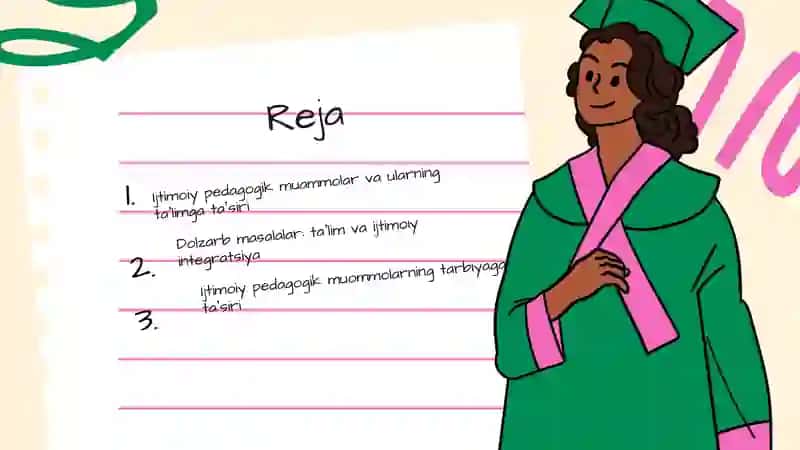 Reja
1. Ijtimoiy pedagogik muammolar va ularning
ta'limga ta'siri
Dolzarb masalalar: ta'lim va ijtimoiy
2. integratsiya
Ijtimoiy pedagogik muammolarning tarbiyaga
3. ta'siri